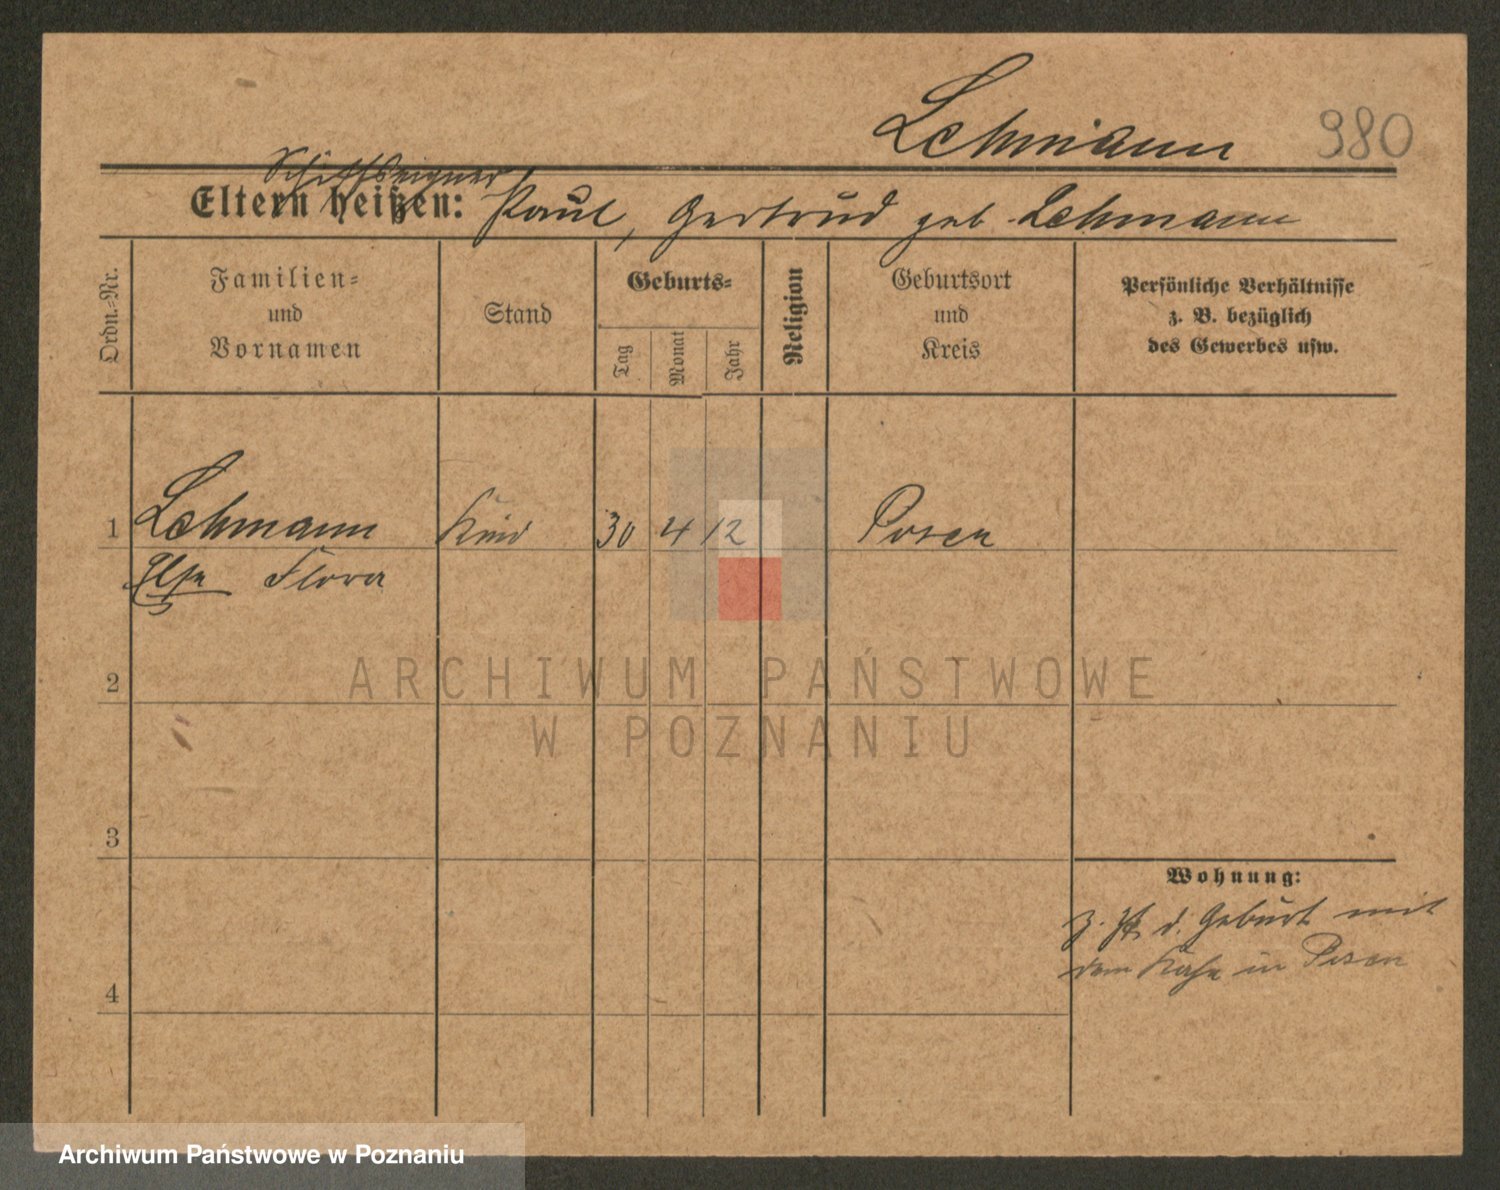 Lehmann 980
Schiffseigner
Eltern heißen: Paul, Gertrud geb. Lehmann
Ordn.-Nr.
Familien-
und
Vornamen
Stand
Geburts-
Tag
Monat
Jahr
Religion
Geburtsort
und
Kreis
Persönliche Verhältnisse
z. B. bezüglich
des Gewerbes usw.
1 Lehmann Kind 30 4 12 Posen
Else Flora
2
ARCHIWUM PAŃSTWOWE
W POZNANIU
3
Wohnung:
z. Zt. d. Geburt mit
dem Kahn in Posen
4
Archiwum Państwowe w Poznaniu